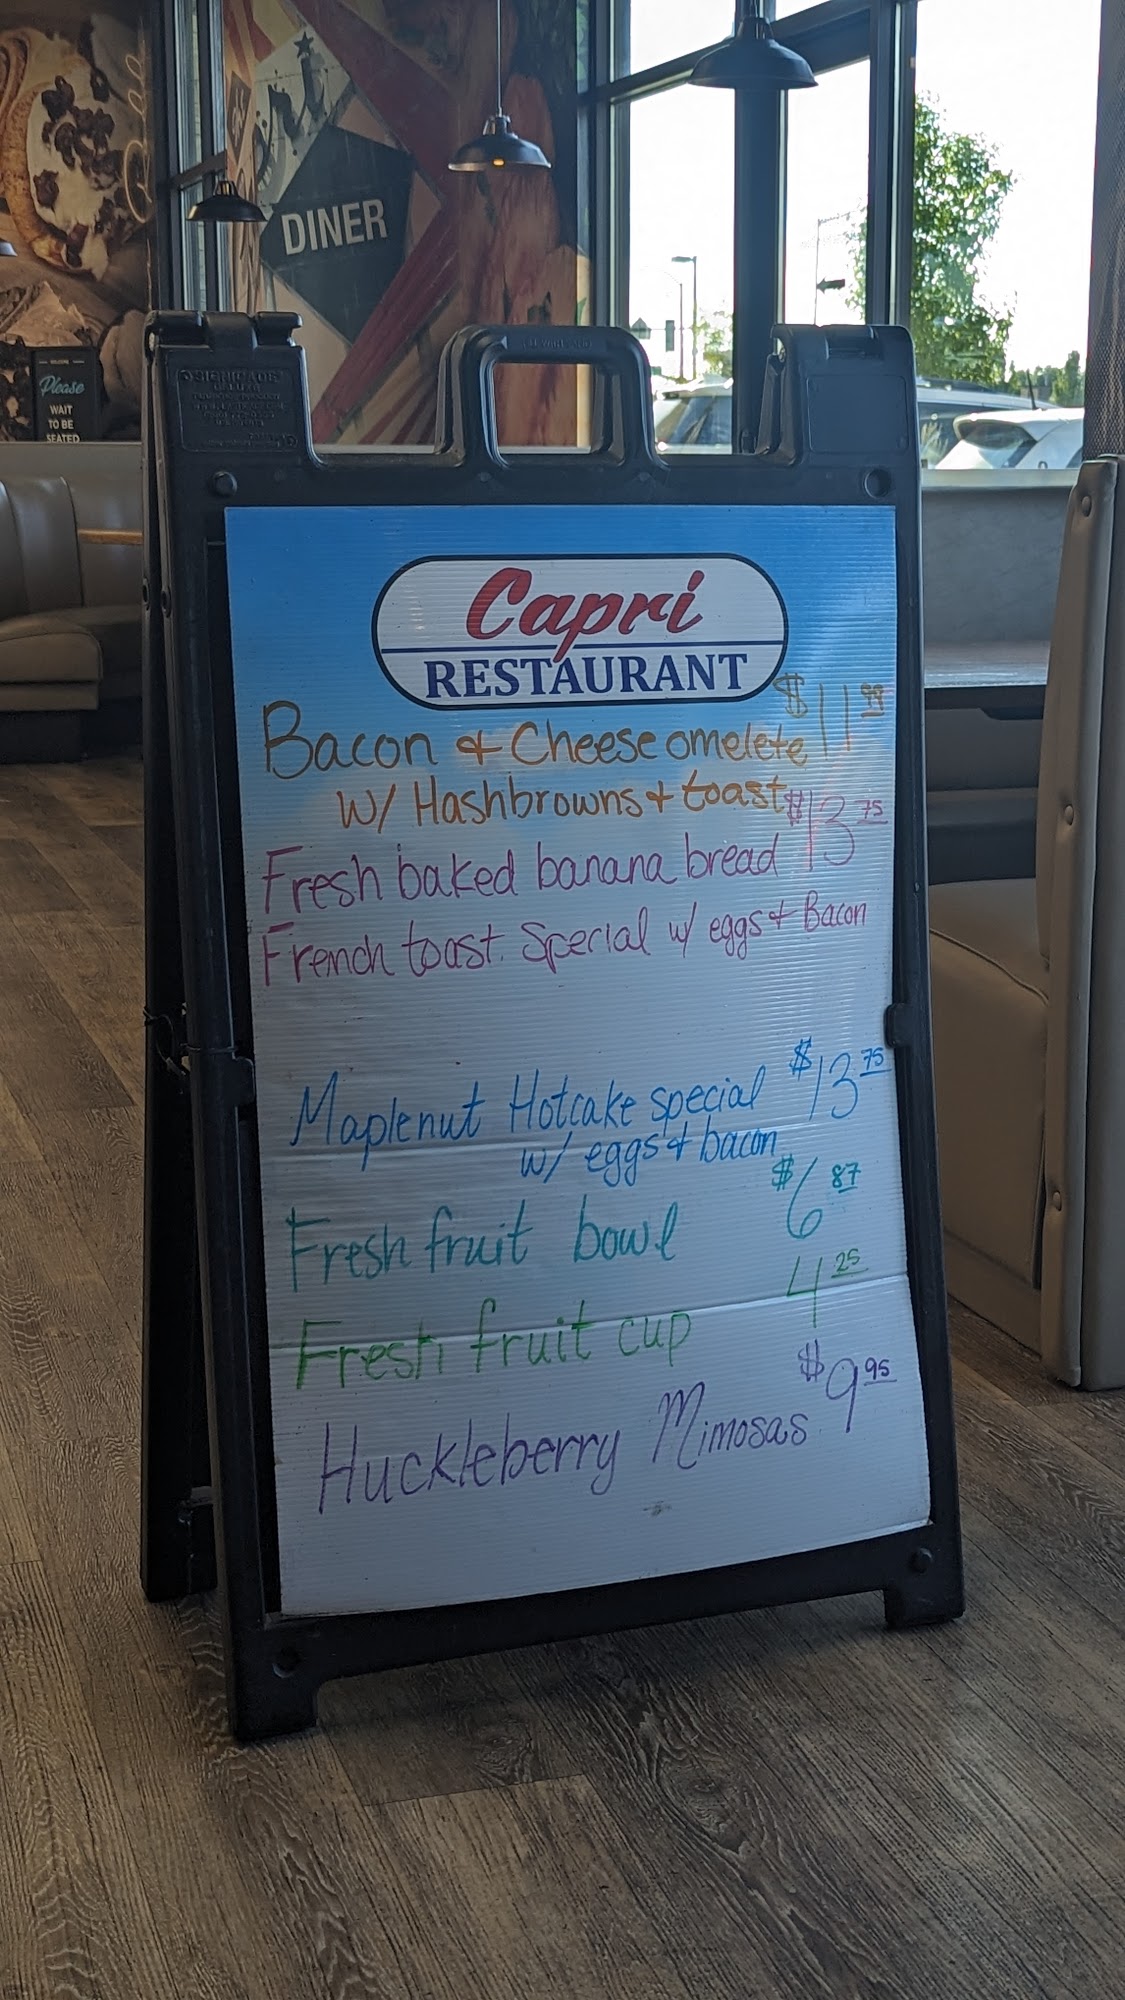 DINER
WELCOME
Please
WAIT
TO BE
SEATED
SIGNICADE
DELUXE
Capri
RESTAURANT
Bacon & Cheese omelete $11 99
w/ Hashbrowns & toast
Fresh baked banana bread $13 75
French toast. Special w/ eggs & Bacon
Maplenut Hotcake special $13 75
w/ eggs & bacon
Fresh fruit bowl $6 87
Fresh fruit cup 4 25
Huckleberry Mimosas $9 95